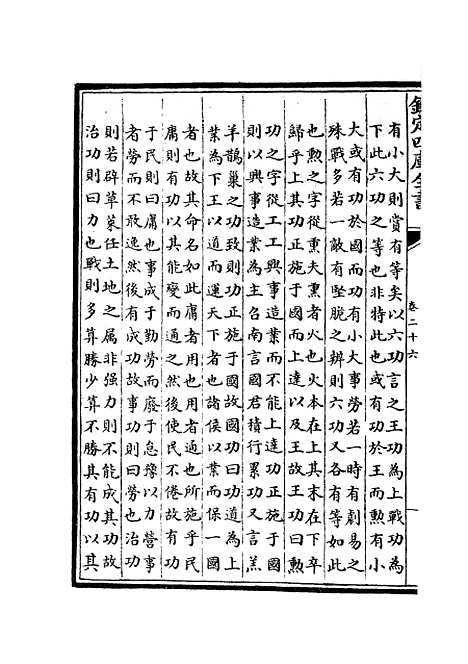 欽定四庫全書
卷二十六
有小大則賞有等矣以六功言之王功為上戰功為
下此六功之等也非特此也或有功於王而勲有小
大或有功於國而功有大小事勞若一時有劇易之
殊戰多若一敵有堅脆之辨則六功又各有等如此
也勲之字從熏夫熏者火也火本在上其末在下卒
歸乎上其功正施于國而上達以及王故王功曰勲
功之字從工工興事造業而不能上達功正施于國
則以興事造業為主召南言國君積行累功又言羔
羊鵲巢之功致則功正施于國故國功曰功道為上
業為下王以道而運天下者也諸侯以業而保一國
者也故其命名如此庸有用也用者通也所施乎民
庸則有功以其能變而通之然後使民不倦故有功
于民則曰庸也事成于勤勞而廢于怠豫以力營事
者勞而不敢逸然後有成功故事功則曰勞也治功
則若辟草萊任土地之属非强力則不能成其功故
治功則曰力也戰則多算勝少算不勝其有功以其